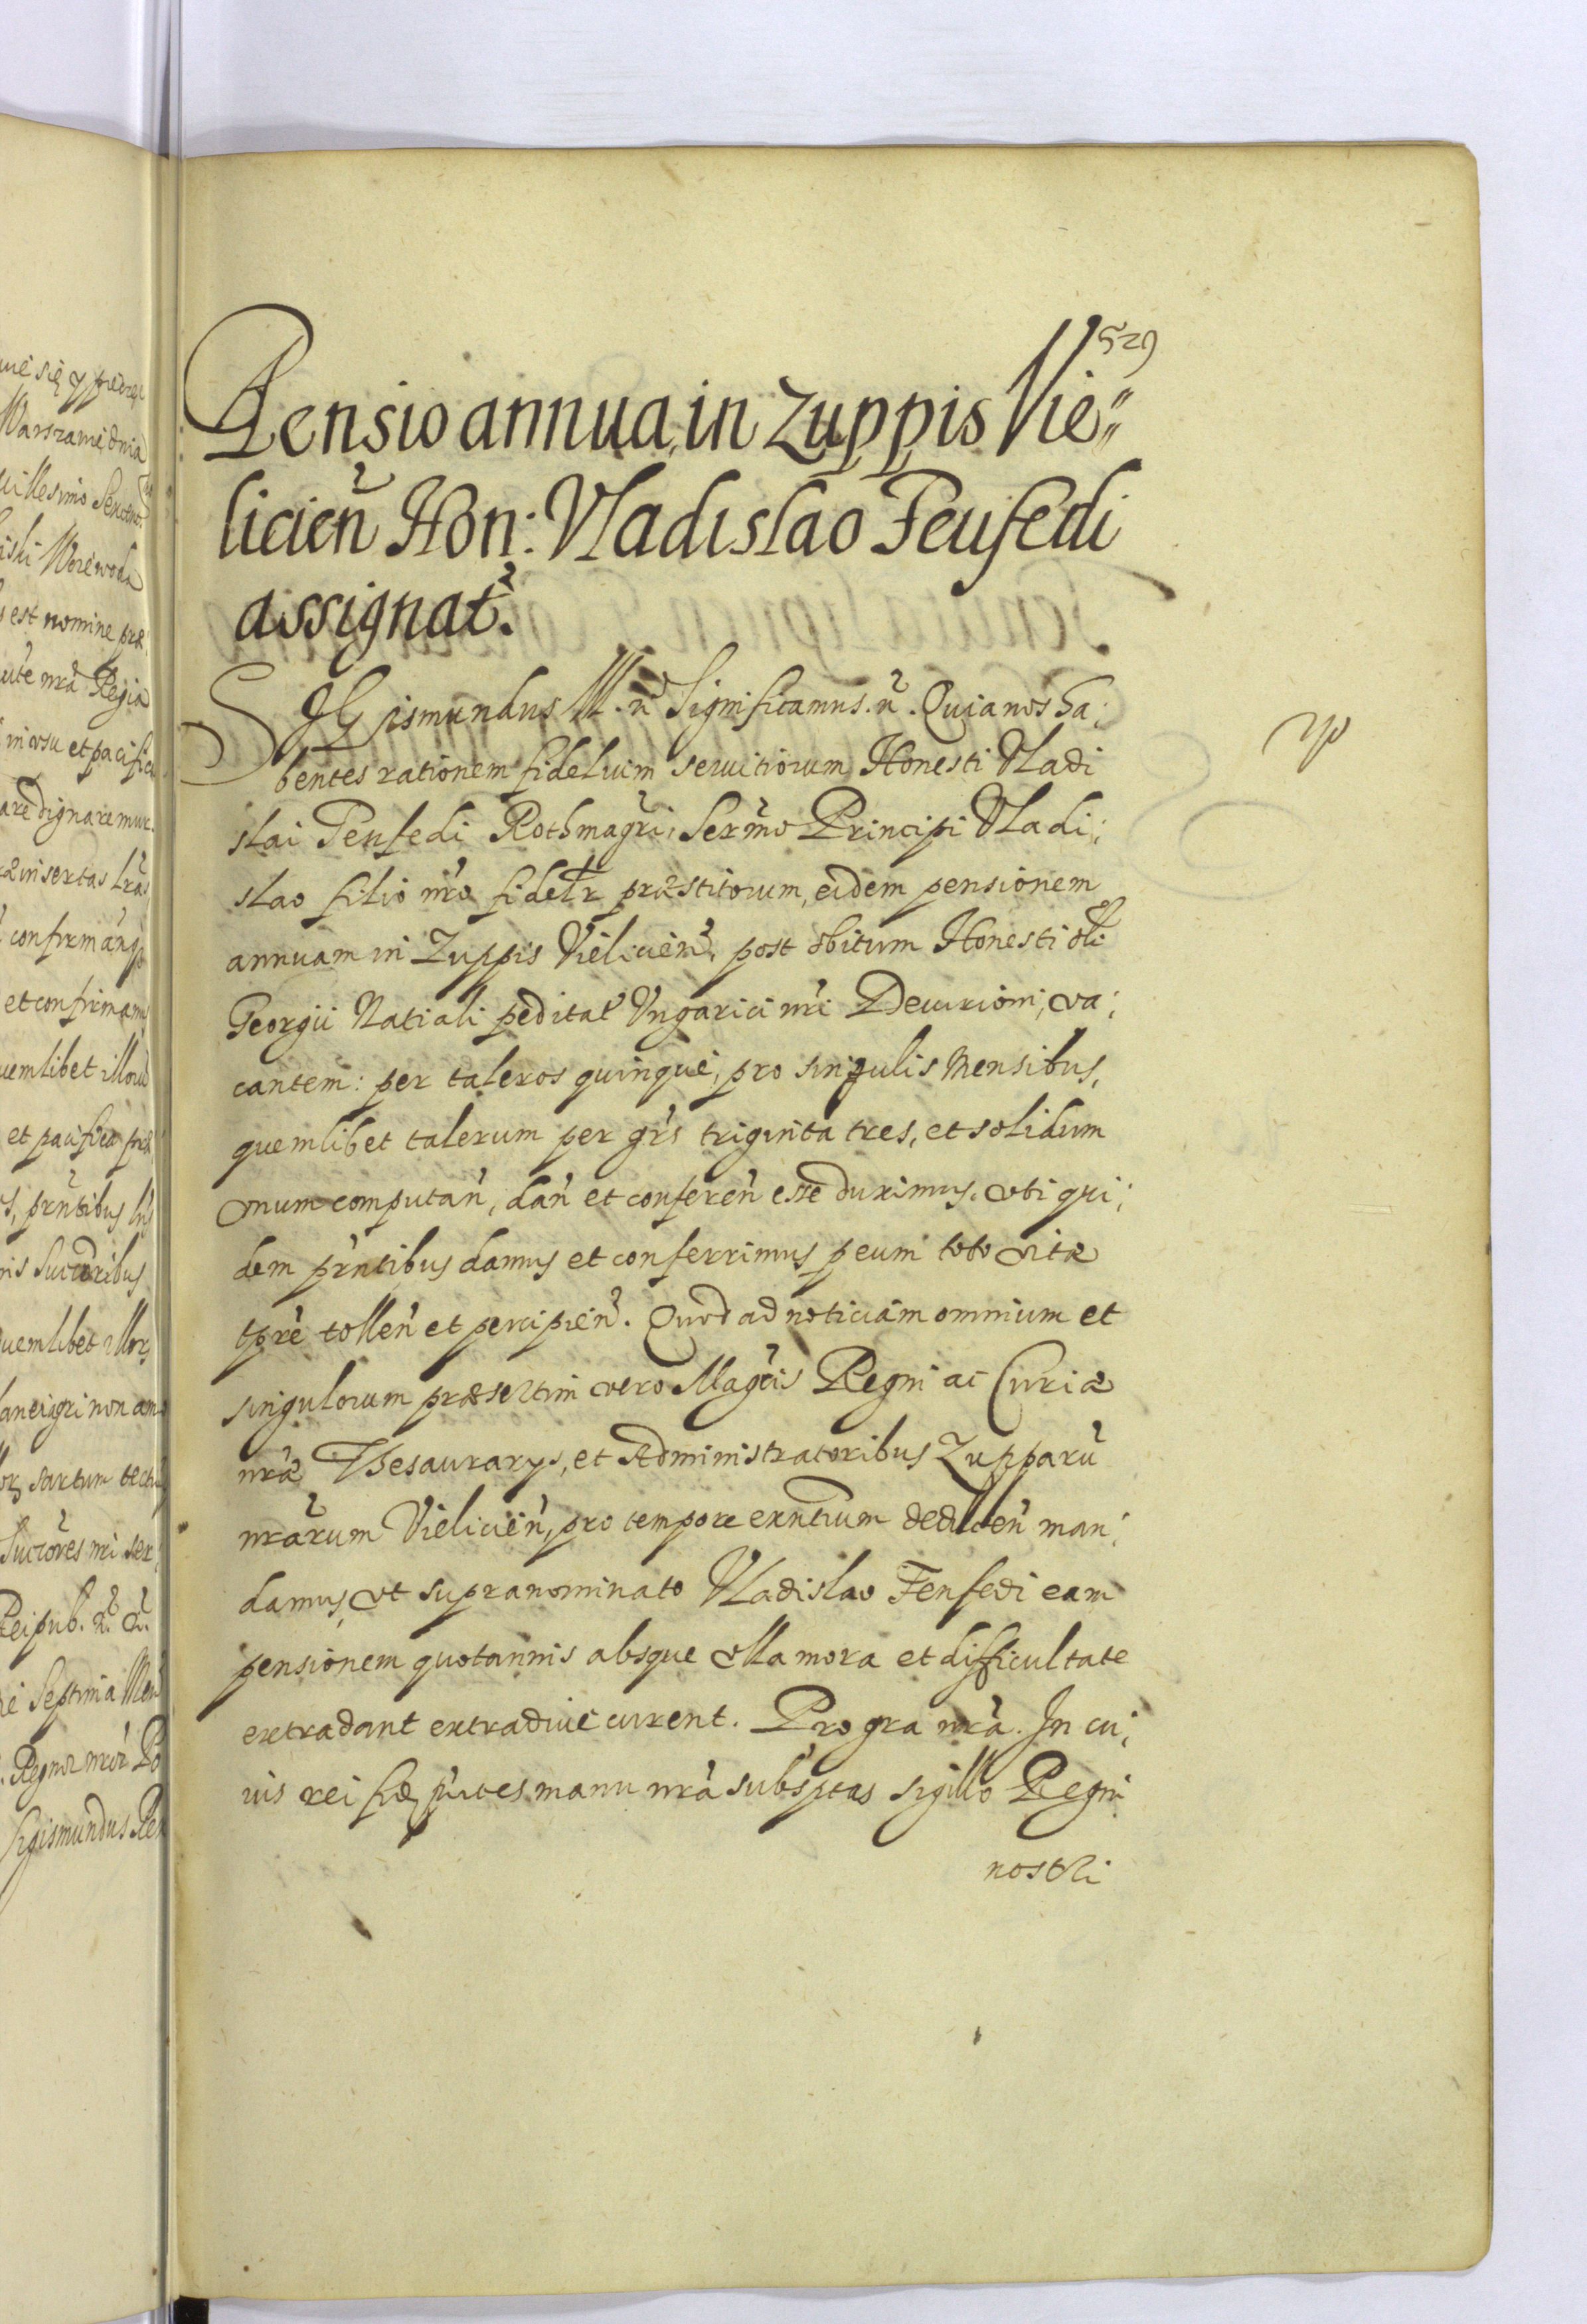 529
Pensio annua in Zuppis Vie„
licień Hon: Vladislao Feufedi
assignat.
SIGismundus III. ñ Significamus. ñ. Quia nos ha;
bentes rationem fidelium seruitiorum Honesti Vladi
slai Fenfedi Rothmagri, Sermo Principi Vladi;
slao filio nro fidelr præstitorum, eidem pensionem
annuam in Zuppis Vielicień, post obitum Honesti oli
Georgii Natiali peditat Vngarici nri Decurioni, va;
cantem: per taleros quinque, pro singulis Mensibus,
quemlibet talerum per grs triginta tres, et solidum
vnum computań, dań et confereń esse duximus. vti qui;
dem prntibus damus et conferrimus p eum toto vitæ
tpre tolleń et percipień. Quod ad noticiam omnium et
singulorum præsertim vero Magcis Regni ac Curiæ
nræ Thesaurarys, et Administratoribus Zupparu
nrarum Vielicień, pro tempore exntium deduceń man;
damus, vt supranominato Vladislao Fenfedi eam
pensionem quotannis absque vlla mora et difficultate
extradant extradiue curent. Pro gra nra. In cu;
ius rei fid prntes manu nra subsptas sigillo Regni
nostri
ue się y
Warszawie dnia
illesimo Sexcent
iski Woiewoda
est nomine præ
nra Regia
in vsu et pacifica
are dignaremur.
insertas lras
confirmań
et confirmam
uemlibet illorum
et pacifica
prntibus lris
is Succoribus
uemlibet illor
non
sartum tectu
Succores nri ser
Reipub. ñ. ñ.
ie Septima Men
Regnor nror Po
Sigismundus Rex